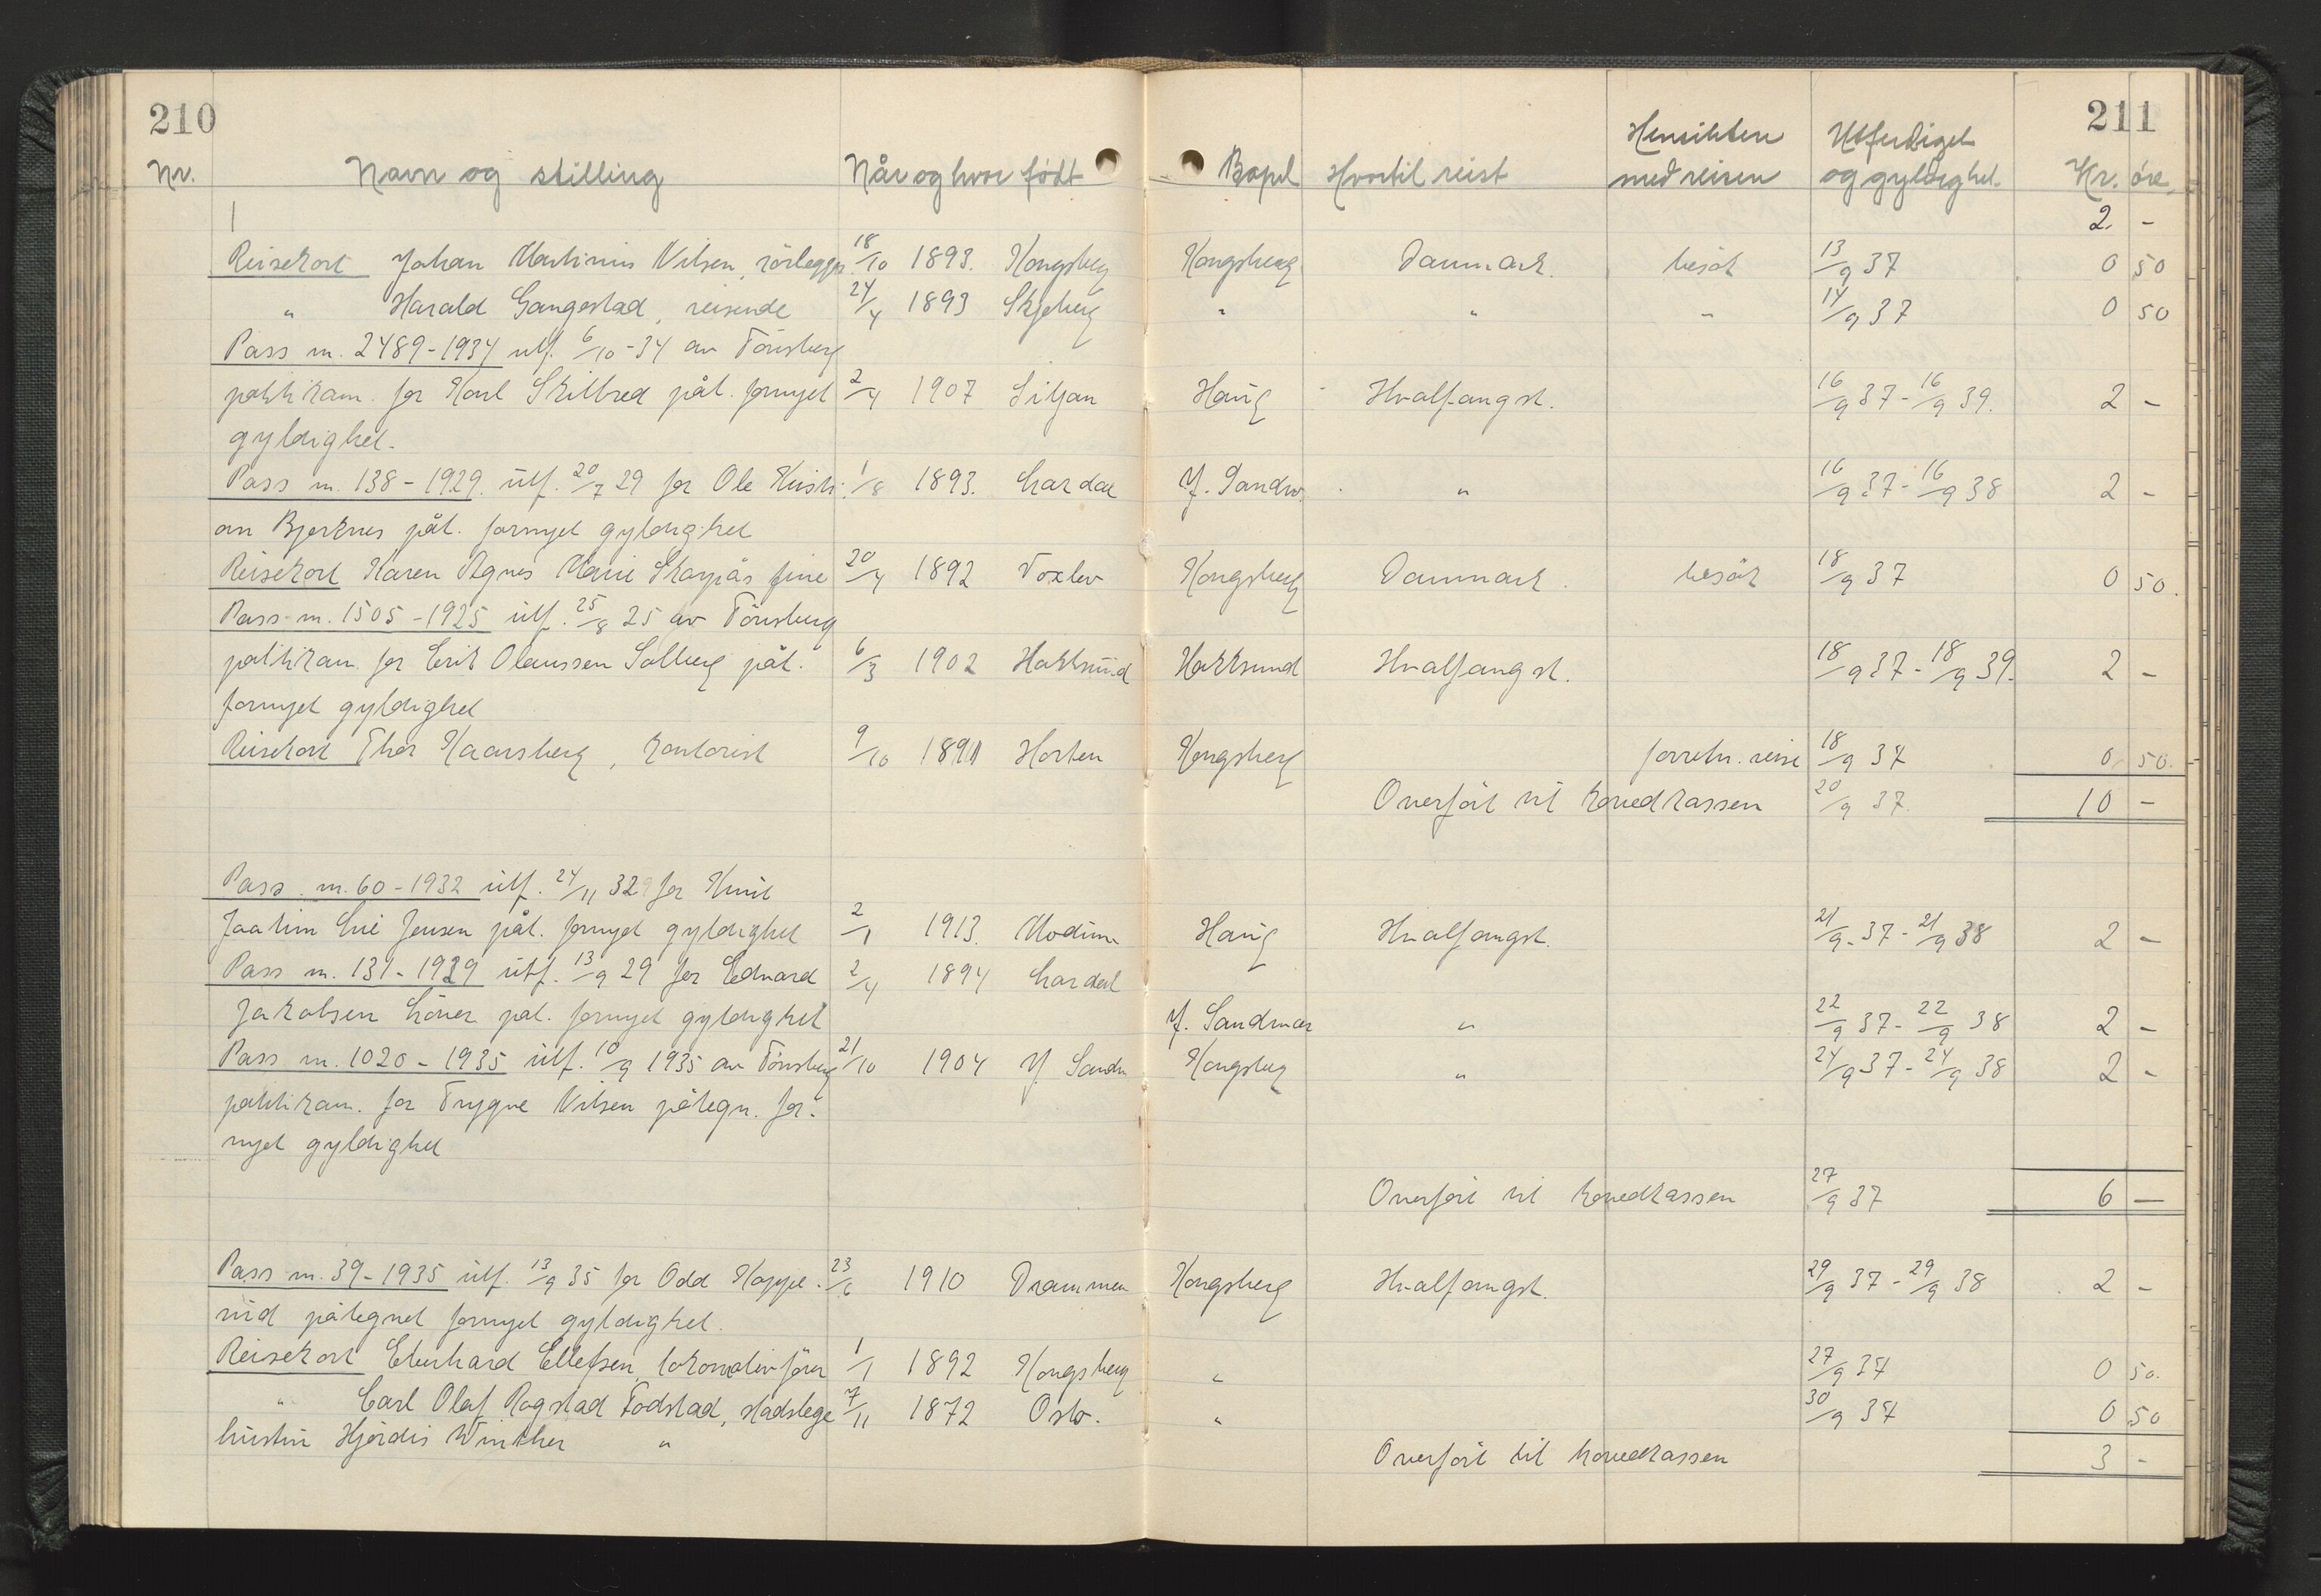 210
211
Nr. Navn og stilling Når og hvor født Bopel Hvortil reist Hensikten med reisen Utferdiget og gyldighet. Kr. øre.
2 -
Reisekort Johan Martinius Nilsen, rörlegger 18/10 1893. Kongsberg Kongsberg Danmark. besök 13/9 37 0 50
" Harald Gangestad, reisende 24/4 1893 Skjeberg " " " 14/9 37 0 50
Pass nr. 2489-1934 utf. 6/10-34 av Tönsberg
politikam. for Karl Skilbred påt. fornyet 2/4 1907 Siljan Haug Hvalfangst. 16/9 37-16/9 39. 2 -
gyldighet.
Pass nr. 138-1929. utf. 20/7 29 for Ole Kristi- 1/8 1893. Lardal Y. Sandsv. " 16/9 37-16/9 38 2 -
an Bjerknes påt. fornyet gyldighet
Reisekort Karen Agnes Marie Skarpås frue 20/4 1892 Foxlev Kongsberg Danmark. besök 18/9 37 0 50.
Pass nr. 1505-1925 utf. 25/8 25 av Tönsberg
politikam. for Erik Olaussen Solberg påt. 6/3 1902 Hokksund Hokksund Hvalfangst. 18/9 37-18/9 39. 2 -
fornyet gyldighet
Reisekort Thor Kaarsberg, kontorist 9/10 1891 Horten Kongsberg forretn. reise 18/9 37 0 50.
Overfört til hovedkassen 20/9 37. 10 -
Pass nr. 60-1932 utf. 24/11 32 for Knut
Joakim Lie Jensen påt. fornyet gyldighet 2/1 1913. Modum Haug Hvalfangst. 21/9-37-21/9 38 2 -
Pass nr. 131-1929 utf. 13/9 29 for Edvard 2/4 1894 Lardal
Jakobsen Löver påt. fornyet gyldighet Y. Sandsvær " 22/9 37-22/9 38 2 -
Pass nr. 1020-1935 utf. 10/9 1935 av Tönsberg 21/10 1904 Y. Sandsv Kongsberg " 24/9-37-24/9 38 2 -
politikam. for Trygve Nilsen påtegn. for-
nyet gyldighet
Overfört til hovedkassen 27/9 37 6 -
Pass nr. 39-1935 utf. 13/9 35 for Odd Hoppe- 23/6 1910 Drammen Kongsberg Hvalfangst. 29/9 37-29/9 38 2 -
rud påtegnet fornyet gyldighet.
Reisekort Eberhard Ellefsen, lokomotivförer 1/1 1892 Kongsberg " 27/9 37 0 50.
" Carl Olaf Rogstad Fodstad, stadslege 7/11 1872 Oslo. " 30/9 37 0 50
hustru Hjördis Winther "
Overfört til hovedkassen 3 -